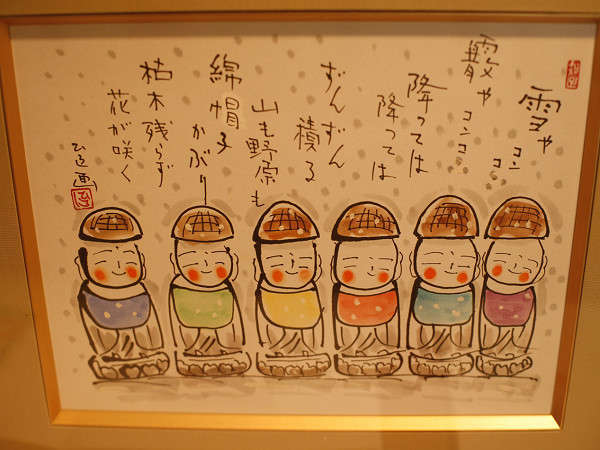 雪や
コンコ
霰や
コンコン
降っては
降っては
ずんずん
積る
山も野原も
綿帽子
かぶり
枯木残らず
花が咲く